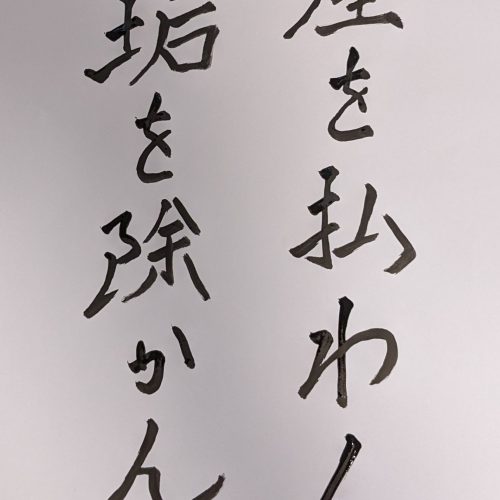 を払わ
垢を除かん